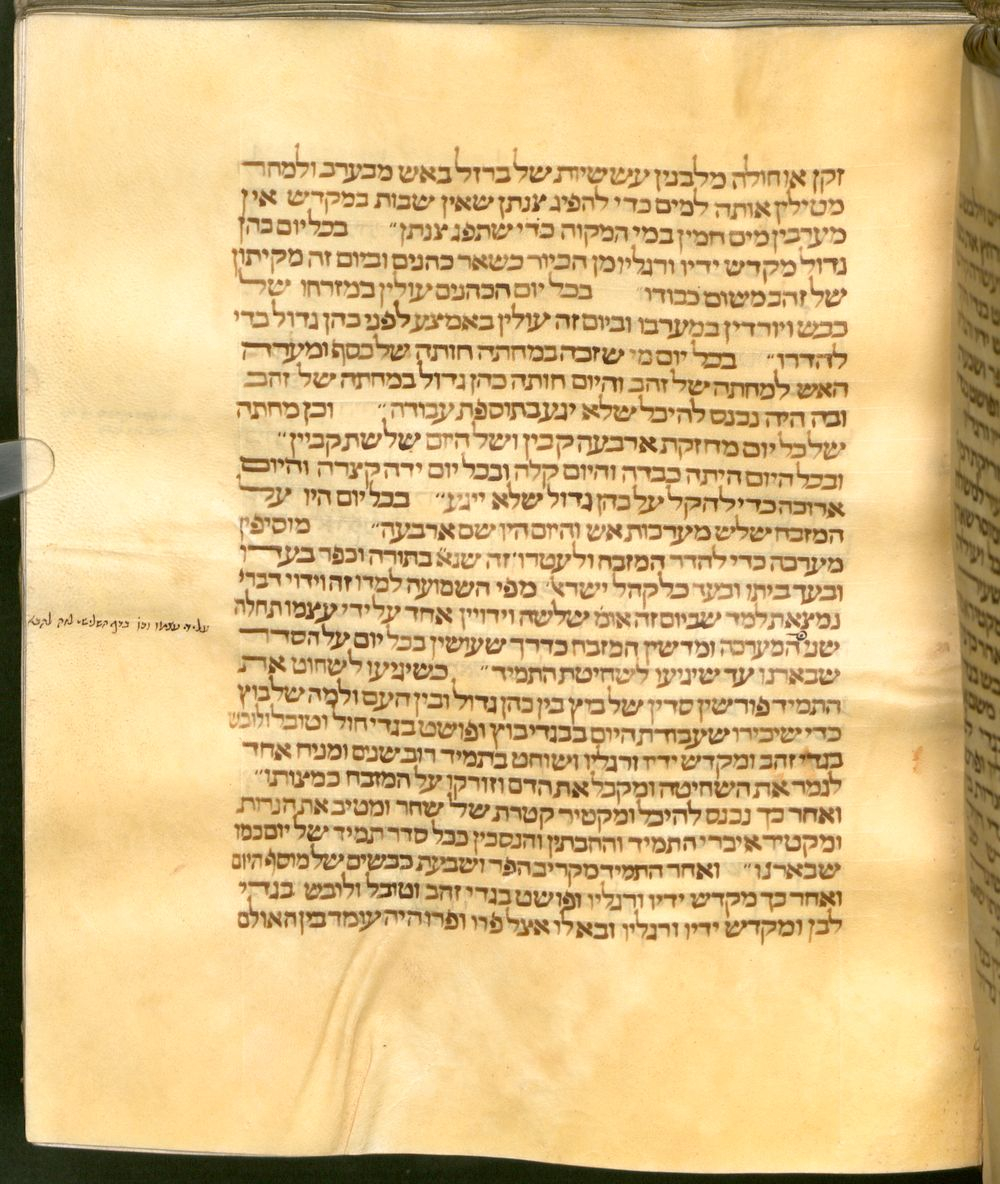 זקן או חולה מלבנין עששיות של ברזל באש מבערב ולמחר
מטילין אותה למים כדי להפיג צנתן שאין שבות במקדש אין
מערבין מים חמין במי המקוה כדי שתפג צנתן״ בכל יום כהן
גדול מקדש ידיו ורגליו מן הכיור כשאר כהנים וביום זה מקיתון
של זהב משום כבודו״ בכל יום הכהנים עולין במזרחו של
כבש ויורדין במערבו וביום זה עולין באמצע לפני כהן גדול כדי
להדרו״ בכל יום מי שזכה במחתה חותה של כסף ומערה
האש למחתה של זהב והיום חותה כהן גדול במחתה של זהב
ובה היה נכנס להיכל שלא יגע בתוספת עבודה״ וכן מחתה
של כל יום מחזקת ארבעה קבין ושל היום שלשת קבין״
ובכל היום היתה כבדה והיום קלה ובכל יום ידה קצרה והיום
ארוכה כדי להקל על כהן גדול שלא ייגע״ בכל יום היו על
המזבח שלש מערכות אש והיום היו שם ארבעה״ מוסיפין
מערכה כדי להדר המזבח ולעטרו׳ זה שנא׳ בתורה וכפר בעדו
ובעד ביתו ובעד כל קהל ישראל מפי השמועה למדו זה וידוי דברי׳
נמצאת למד שביום זה אומ׳ שלשה וידויין אחד על ידי עצמו תחלה
על ידי עצמו וכו׳
שני המערכה ומדשין המזבח כדרך שעושין בכל יום על הסדר
שבארנו עד שיגיעו לשחיטת התמיד״ כשיגיעו לשחוט את
התמיד פורשין סדין של בוץ בין כהן גדול ובין העם ולמה של בוץ
כדי שיכירו שעבודת היום בבגדי בוץ ופושט בגדי חול וטובל ולובש
בגדי זהב ומקדש ידיו ורגליו ושוחט בתמיד רוב שנים ומניח אחד
לגמר את השחיטה ומקבל את הדם וזורקו על המזבח כמצותו״
ואחר כך נכנס להיכל ומקטיר קטרת של שחר ומטיב את הנרות
ומקטיר איברי התמיד והחבתין והנסכין ככל סדר תמיד של יום כמו
שבארנו״ ואחר התמיד מקריב הפר ושבעת כבשים של מוסף היום
ואחר כך מקדש ידיו ורגליו ופושט בגדי זהב וטובל ולובש בגדי
לבן ומקדש ידיו ורגליו ובא לו אצל פרו ופרו היה עומד בין האולם